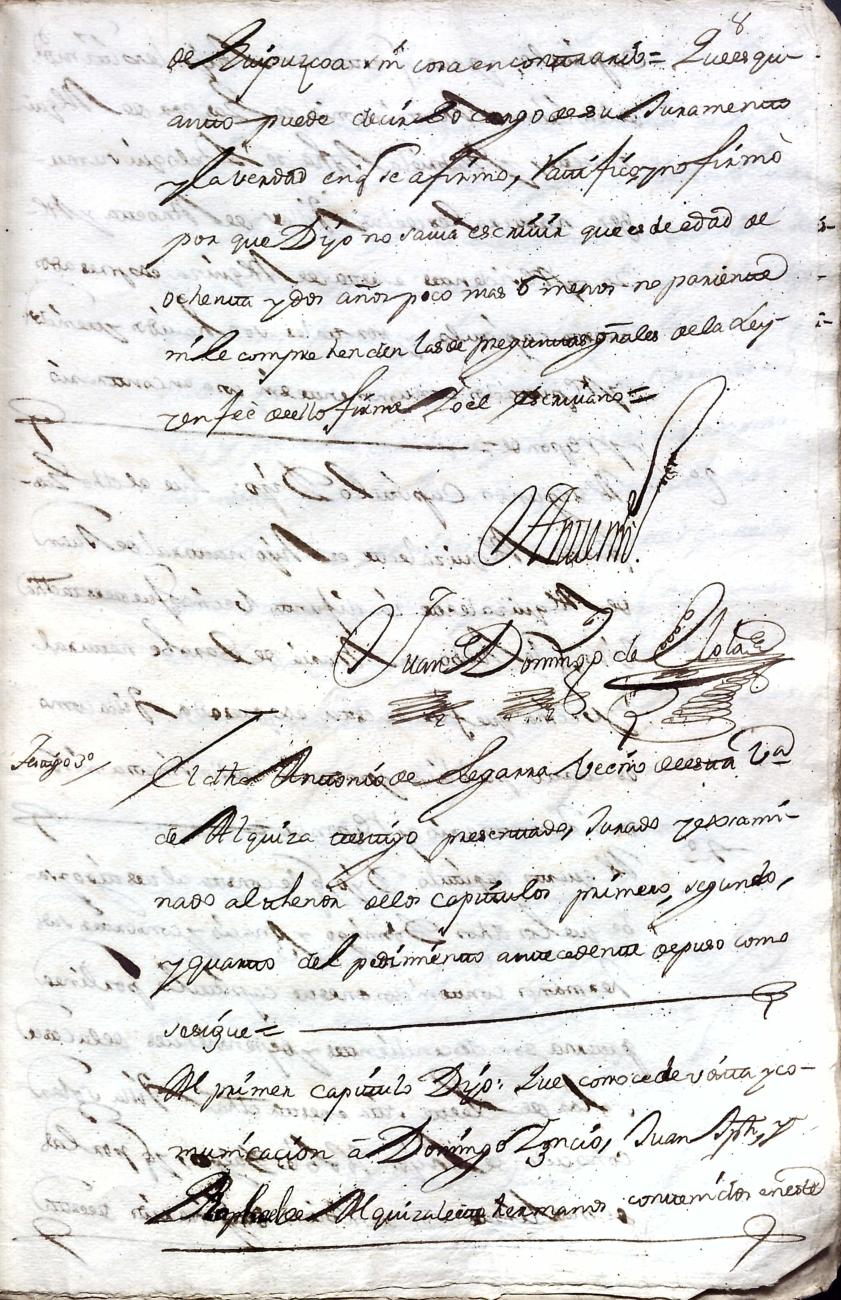 8
de Guipuzcoa ni cosa en contrario = Que es qu-
anto puede decir so cargo de su Juramento
y la verdad en q se afirmo, ratifico, y no firmò
por que Dijo no savia escriuir que es de edad de
ochenta y dos años poco mas ô menos no pariente
ni le comprehenden las de preguntas gñales de la Ley
y en feè de ello firme Yo el escriuano =
Antemi
Juan Domingo de
Testigo 3º
El dho Antonio de Legarra Vecino de esta Vª
de Alquiza testigo presentado, Jurado y exami-
nado al thenor de los capitulos primero, segundo,
y quarto del pedimiento antecedente depuso como
se sigue =
Al primer capitulo Dijo: Que conoce de vista y co-
municación â Domingo Ignº, Juan Jph, y
de Alquizalete hermanos contenidos en este